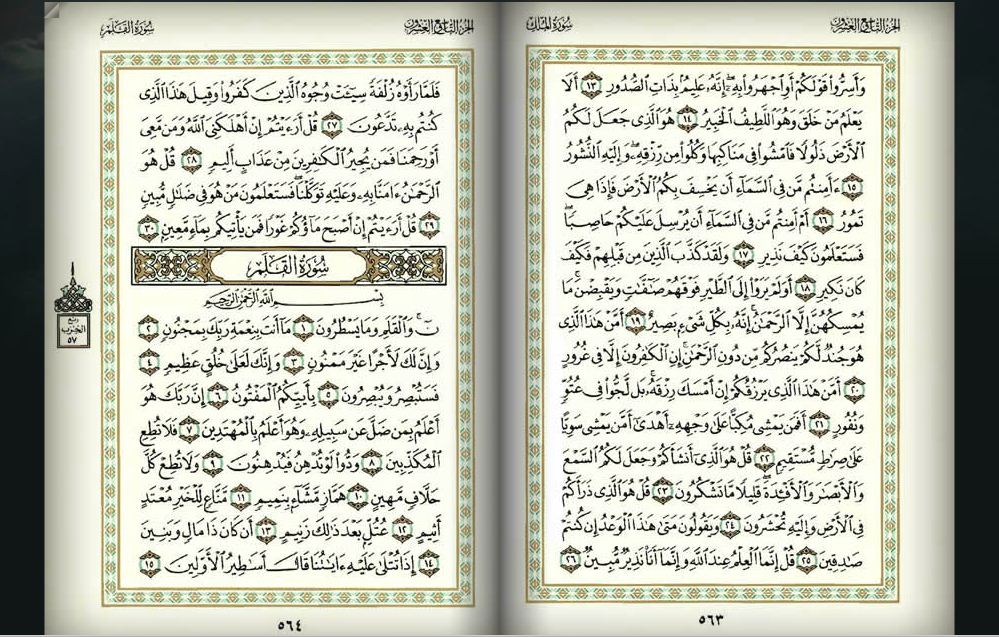 سُورَةُ المُلْكِ
الجزء التاسع والعشرون
وَأَسِرُّوا۟ قَوْلَكُمْ أَوِ ٱجْهَرُوا۟ بِهِۦٓ إِنَّهُۥ عَلِيمٌۢ بِذَاتِ ٱلصُّدُورِ ١٣ أَلَا
يَعْلَمُ مَنْ خَلَقَ وَهُوَ ٱللَّطِيفُ ٱلْخَبِيرُ ١٤ هُوَ ٱلَّذِى جَعَلَ لَكُمُ
ٱلْأَرْضَ ذَلُولًا فَٱمْشُوا۟ فِى مَنَاكِبِهَا وَكُلُوا۟ مِن رِّزْقِهِۦ وَإِلَيْهِ ٱلنُّشُورُ
١٥ ءَأَمِنتُم مَّن فِى ٱلسَّمَآءِ أَن يَخْسِفَ بِكُمُ ٱلْأَرْضَ فَإِذَا هِىَ
تَمُورُ ١٦ أَمْ أَمِنتُم مَّن فِى ٱلسَّمَآءِ أَن يُرْسِلَ عَلَيْكُمْ حَاصِبًا
فَسَتَعْلَمُونَ كَيْفَ نَذِيرِ ١٧ وَلَقَدْ كَذَّبَ ٱلَّذِينَ مِن قَبْلِهِمْ فَكَيْفَ
كَانَ نَكِيرِ ١٨ أَوَلَمْ يَرَوْا۟ إِلَى ٱلطَّيْرِ فَوْقَهُمْ صَـٰٓفَّـٰتٍ وَيَقْبِضْنَ مَا
يُمْسِكُهُنَّ إِلَّا ٱلرَّحْمَـٰنُ إِنَّهُۥ بِكُلِّ شَىْءٍۭ بَصِيرٌ ١٩ أَمَّنْ هَـٰذَا ٱلَّذِى
هُوَ جُندٌ لَّكُمْ يَنصُرُكُم مِّن دُونِ ٱلرَّحْمَـٰنِ إِنِ ٱلْكَـٰفِرُونَ إِلَّا فِى غُرُورٍ
٢٠ أَمَّنْ هَـٰذَا ٱلَّذِى يَرْزُقُكُمْ إِنْ أَمْسَكَ رِزْقَهُۥ بَل لَّجُّوا۟ فِى عُتُوٍّ
وَنُفُورٍ ٢١ أَفَمَن يَمْشِى مُكِبًّا عَلَىٰ وَجْهِهِۦٓ أَهْدَىٰٓ أَمَّن يَمْشِى سَوِيًّا
عَلَىٰ صِرَٰطٍ مُّسْتَقِيمٍ ٢٢ قُلْ هُوَ ٱلَّذِىٓ أَنشَأَكُمْ وَجَعَلَ لَكُمُ ٱلسَّمْعَ
وَٱلْأَبْصَـٰرَ وَٱلْأَفْـِٔدَةَ قَلِيلًا مَّا تَشْكُرُونَ ٢٣ قُلْ هُوَ ٱلَّذِى ذَرَأَكُمْ
فِى ٱلْأَرْضِ وَإِلَيْهِ تُحْشَرُونَ ٢٤ وَيَقُولُونَ مَتَىٰ هَـٰذَا ٱلْوَعْدُ إِن كُنتُمْ
صَـٰدِقِينَ ٢٥ قُلْ إِنَّمَا ٱلْعِلْمُ عِندَ ٱللَّهِ وَإِنَّمَآ أَنَا۠ نَذِيرٌ مُّبِينٌ ٢٦
٥٦٣
الجزء التاسع والعشرون
سُورَةُ القَلَمِ
فَلَمَّا رَأَوْهُ زُلْفَةً سِيٓـَٔتْ وُجُوهُ ٱلَّذِينَ كَفَرُوا۟ وَقِيلَ هَـٰذَا ٱلَّذِى
كُنتُم بِهِۦ تَدَّعُونَ ٢٧ قُلْ أَرَءَيْتُمْ إِنْ أَهْلَكَنِىَ ٱللَّهُ وَمَن مَّعِىَ
أَوْ رَحِمَنَا فَمَن يُجِيرُ ٱلْكَـٰفِرِينَ مِنْ عَذَابٍ أَلِيمٍ ٢٨ قُلْ هُوَ
ٱلرَّحْمَـٰنُ ءَامَنَّا بِهِۦ وَعَلَيْهِ تَوَكَّلْنَا فَسَتَعْلَمُونَ مَنْ هُوَ فِى ضَلَـٰلٍ مُّبِينٍ
٢٩ قُلْ أَرَءَيْتُمْ إِنْ أَصْبَحَ مَآؤُكُمْ غَوْرًا فَمَن يَأْتِيكُم بِمَآءٍ مَّعِينٍۭ ٣٠
سُورَةُ القَلَمِ
بِسْمِ ٱللَّهِ ٱلرَّحْمَـٰنِ ٱلرَّحِيمِ
نٓ وَٱلْقَلَمِ وَمَا يَسْطُرُونَ ١ مَآ أَنتَ بِنِعْمَةِ رَبِّكَ بِمَجْنُونٍ ٢
وَإِنَّ لَكَ لَأَجْرًا غَيْرَ مَمْنُونٍ ٣ وَإِنَّكَ لَعَلَىٰ خُلُقٍ عَظِيمٍ ٤
فَسَتُبْصِرُ وَيُبْصِرُونَ ٥ بِأَييِّكُمُ ٱلْمَفْتُونُ ٦ إِنَّ رَبَّكَ هُوَ
أَعْلَمُ بِمَن ضَلَّ عَن سَبِيلِهِۦ وَهُوَ أَعْلَمُ بِٱلْمُهْتَدِينَ ٧ فَلَا تُطِعِ
ٱلْمُكَذِّبِينَ ٨ وَدُّوا۟ لَوْ تُدْهِنُ فَيُدْهِنُونَ ٩ وَلَا تُطِعْ كُلَّ
حَلَّافٍ مَّهِينٍ ١٠ هَمَّازٍ مَّشَّآءٍۭ بِنَمِيمٍ ١١ مَّنَّاعٍ لِّلْخَيْرِ مُعْتَدٍ
أَثِيمٍ ١٢ عُتُلٍّۭ بَعْدَ ذَٰلِكَ زَنِيمٍ ١٣ أَن كَانَ ذَا مَالٍ وَبَنِينَ
١٤ إِذَا تُتْلَىٰ عَلَيْهِ ءَايَـٰتُنَا قَالَ أَسَـٰطِيرُ ٱلْأَوَّلِينَ ١٥
ربع
الحزب
٥٧
٥٦٤